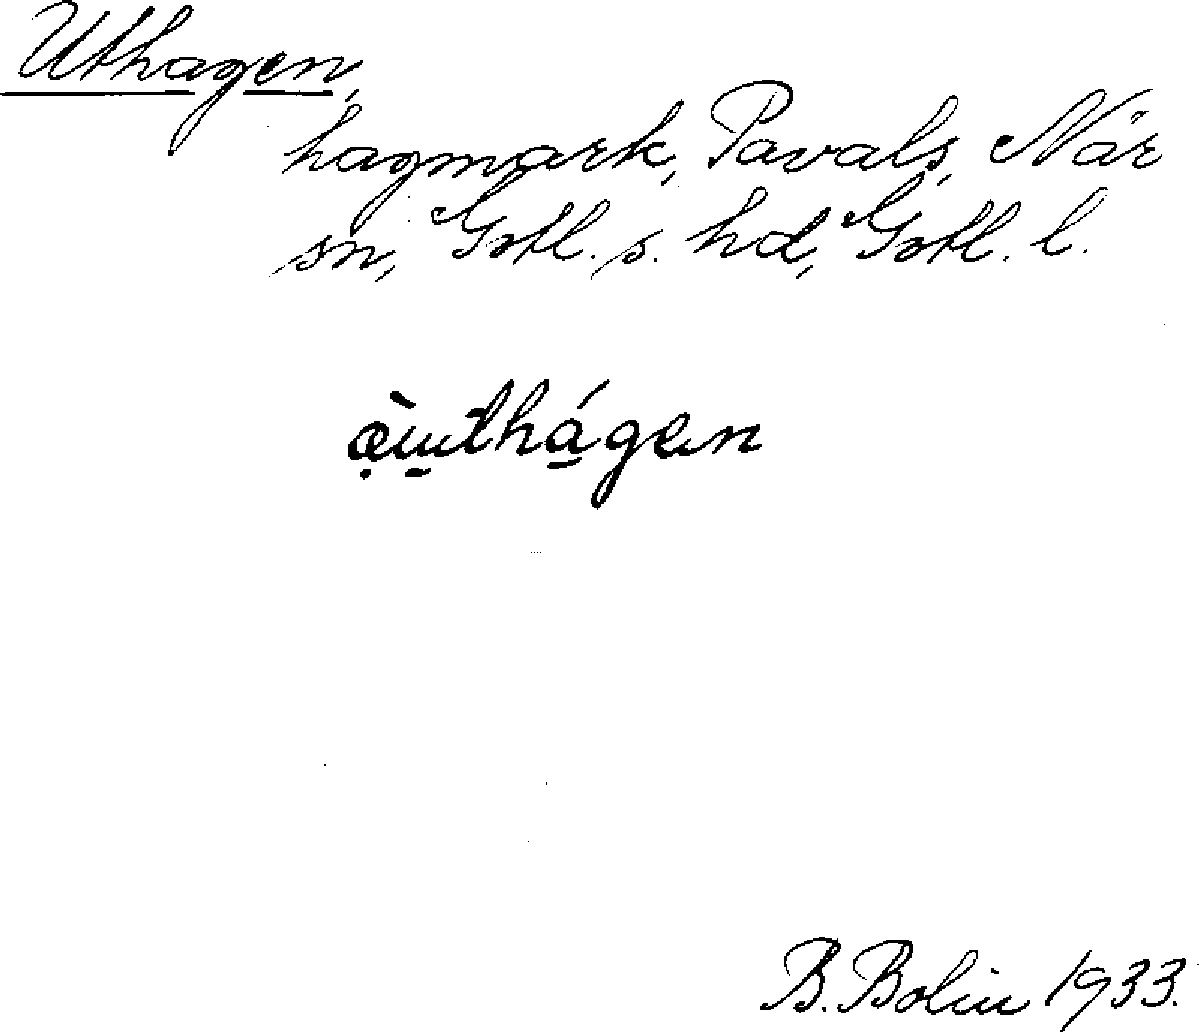 Uthagen,
hagmark, Pavals, När
sn, Gotl. s. hd, Gotl. l.
æ̣̀u̠thá̠gen
B. Bolin 1933.